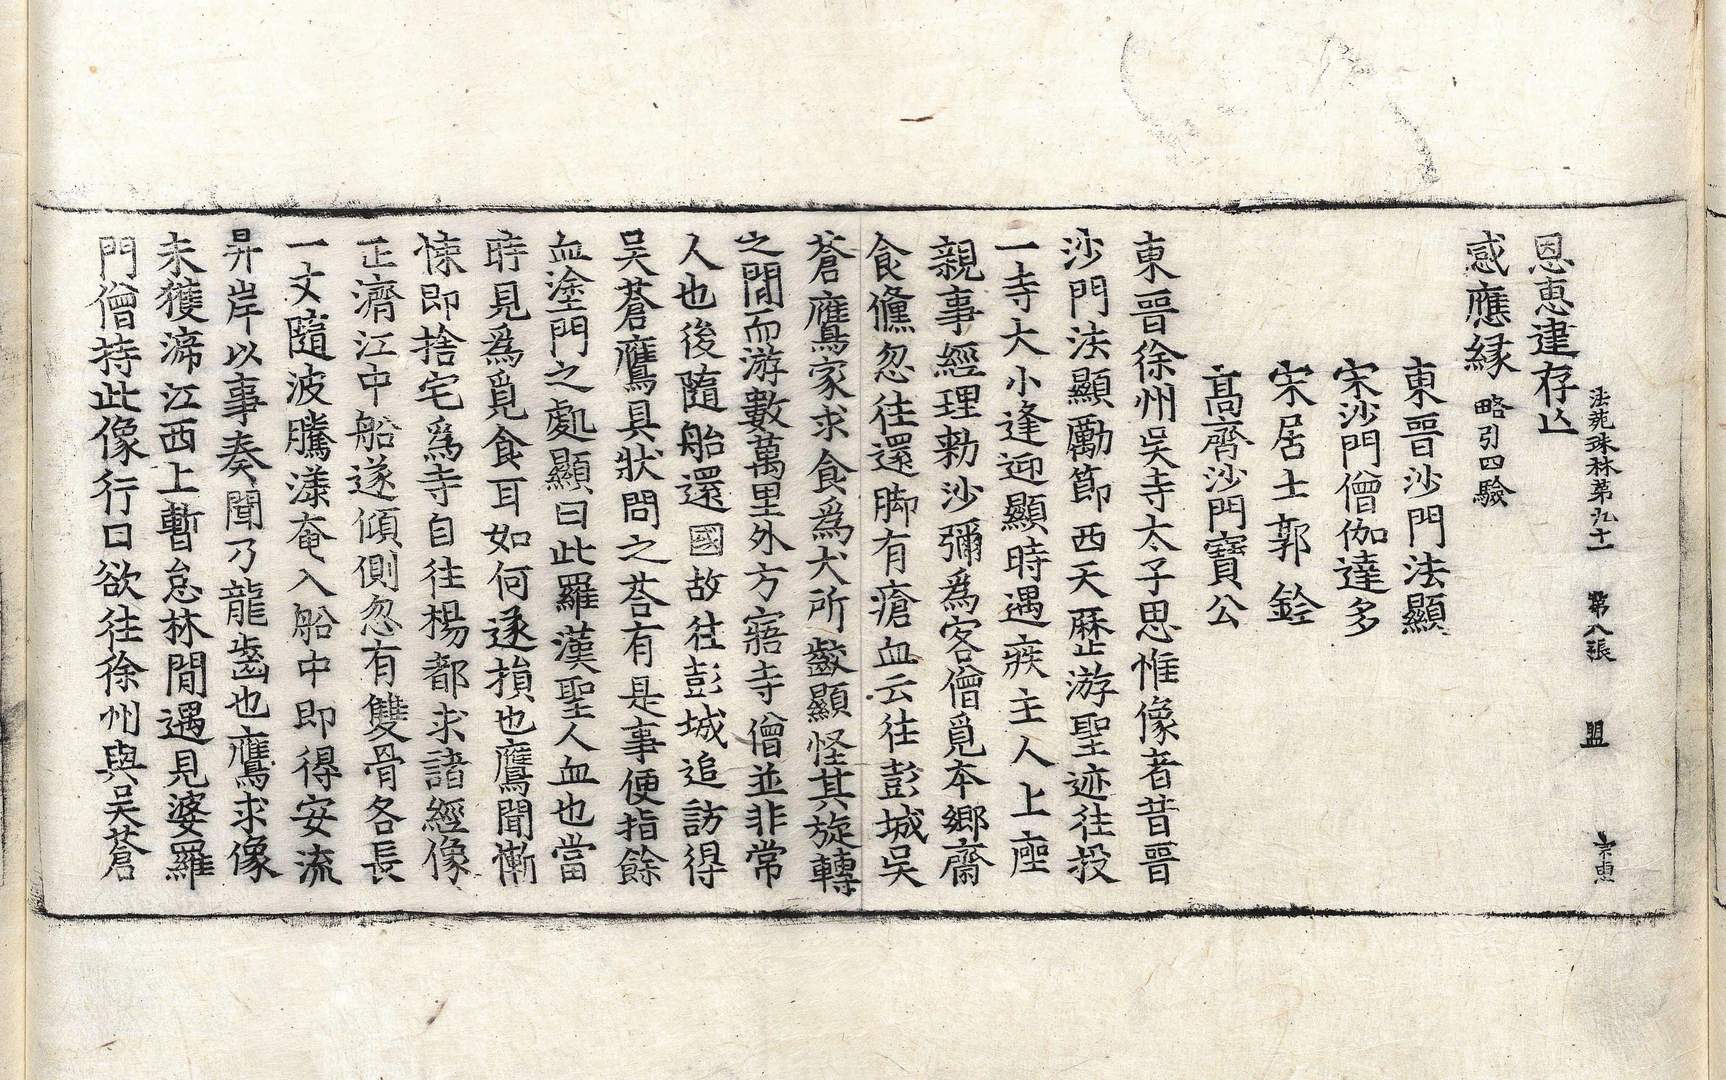 法苑珠林第九十一 第八張 盟
恩惠建存亡
感應緣 略引四驗
東晉沙門法顯
宋沙門僧伽達多
宋居士郭銓
高齊沙門寶公
東晉徐州吳寺太子思惟像者昔晉
沙門法顯勵節西天歷游聖迹往投
一寺大小逢迎顯時遇疾主人上座
親事經理勑沙彌爲客僧覓本鄉齋
食儵忽往還脚有瘡血云往彭城吳
蒼鷹家求食爲犬所齧顯怪其旋轉
之間而游數萬里外方寤寺僧並非常
人也後隨船還國故往彭城追訪得
吳蒼鷹具狀問之荅有是事便指餘
血塗門之處顯曰此羅漢聖人血也當
時見爲覓食耳如何遂損也鷹聞慚
悚即捨宅爲寺自往楊都求諸經像
正濟江中船遂傾側忽有雙骨各長
一丈隨波騰漾奄入船中即得安流
昇岸以事奏聞乃龍齒也鷹求像
未獲泝江西上暫息林間遇見婆羅
門僧持此像行曰欲往徐州與吳蒼